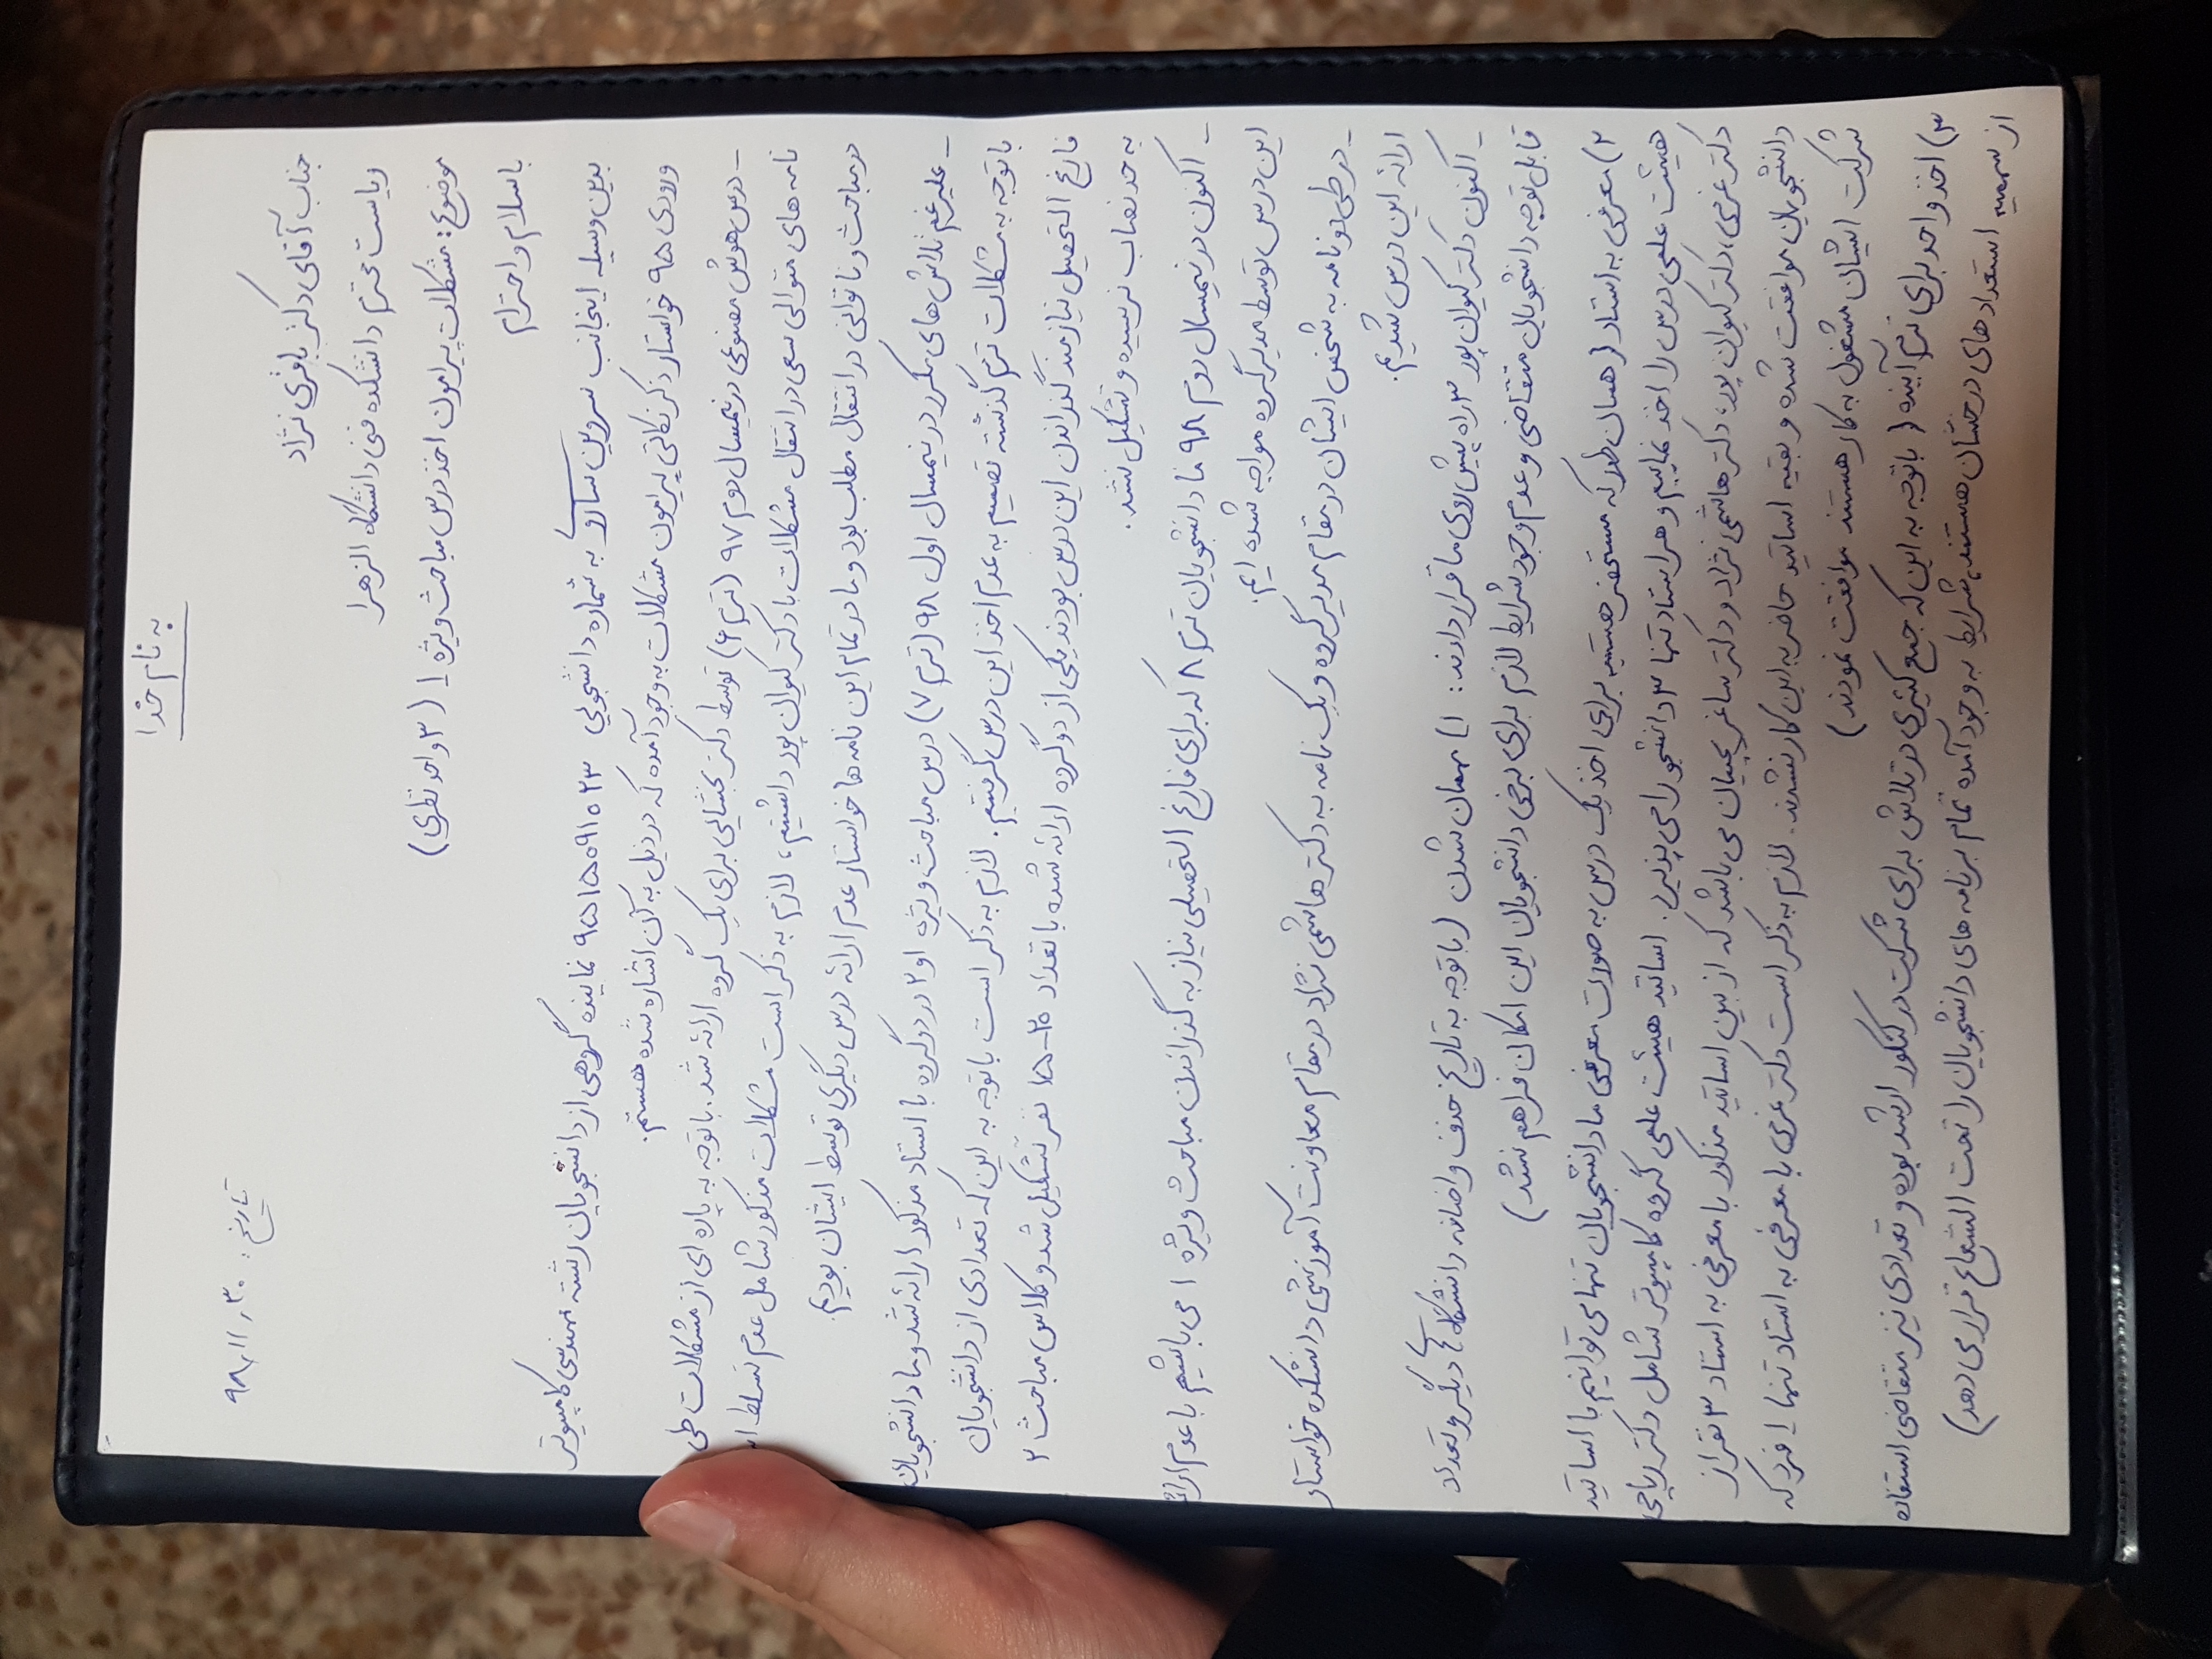 به نام خدا
تاریخ: ۹۸،۱۱،۳۰
جناب آقای دکتر باقری نژاد
ریاست محترم دانشکده فنی دانشگاه الزهرا
موضوع: مشکلات پیرامون اخذ درس مباحث ویژه ۱ (۳ واحد نظری)
باسلام و احترام
بدین وسیله اینجانب سروین ساروی به شماره دانشجویی ۹۵۱۵۰۹۱۰۲۳ نماینده گروهی از دانشجویان رشته مهندسی کامپیوتر
ورودی ۹۵ خواستار ذکر نکاتی پیرامون مشکلات به وجود آمده که در ذیل به آن اشاره شده هستم.
- درس هوش مصنوعی در نیمسال دوم ۹۷ (ترم ۶) توسط دکتر بخشایی برای یک گروه ارائه شد. با توجه به پاره ای از مشکلات طی
نامه های متوالی سعی در انتقال مشکلات با دکتر کیوان پور داشتیم، لازم به ذکر است مشکلات مذکور شامل عدم تسلط
در مباحث و ناتوانی در انتقال مطلب بود و ما در تمام این نامه ها خواستار عدم ارائه درس دیگری توسط ایشان بودیم.
- علیرغم تلاش های مکرر در نیمسال اول ۹۸ (ترم ۷) درس مباحث ویژه ۱و۲ در دو گروه با استاد مذکور ارائه شد و ما دانشجویان
با توجه به مشکلات ترم گذشته تصمیم به عدم اخذ این درس گرفتیم. لازم به ذکر است با توجه به این که تعدادی از دانشجویان
فارغ التحصیل نیازمند گذراندن این درس بودند یکی از دو گروه ارائه شده با تعداد ۲۰-۱۵ نفر تشکیل شد و کلاس مباحث ۲
به حد نصاب نرسیده و تشکیل نشد.
- اکنون در نیمسال دوم ۹۸ ما دانشجویان ترم ۸ که برای فارغ التحصیلی نیاز به گذراندن مباحث ویژه ۱ می باشیم با عدم ارائه
این درس توسط مدیر گروه مواجه شده ایم.
- در طی دو نامه به شخص ایشان در مقام مدیر گروه و یک نامه به دکتر هاشمی نژاد در مقام معاونت آموزشی دانشکده خواستار
ارائه این درس شدیم.
- اکنون دکتر کیوان پور ۳ راه پیش روی ما قرار دادند: ۱) مهمان شدن (با توجه به تاریخ حذف و اضافه دانشگاه های دیگر و تعداد
قابل توجه دانشجویان متقاضی و عدم وجود شرایط لازم برای برخی دانشجویان این امکان فراهم نشد)
۲) معرفی به استاد (همان طور که مستحضر هستید برای اخذ یک درس به صورت معرفی ما دانشجویان تنها می توانیم با اساتید
هیئت علمی درس را اخذ نماییم و هر استاد تنها ۳ دانشجو را می پذیرد. اساتید هیئت علمی گروه کامپیوتر شامل دکتر ریاحی
دکتر غرمی، دکتر کیوان پور، دکتر هاشمی نژاد و دکتر ساغر یحییان می باشد که از بین اساتید مذکور با معرفی به استاد ۳ نفر از
دانشجویان موافقت شده و بقیه اساتید حاضر به این کار نشدند. لازم به ذکر است دکتر غرمی با معرفی به استاد تنها ۱ فرد که
شرکت ایشان مشغول به کار هستند موافقت نمودند)
۳) اخذ واحد برای ترم آینده (با توجه به این که جمع کثیری در تلاش برای شرکت در کنکور ارشد بوده و تعدادی نیز متقاضی استفاده
از سهمیه استعدادهای درخشان هستند، شرایط به وجود آمده تمام برنامه های دانشجویان را تحت الشعاع قرار می دهد)